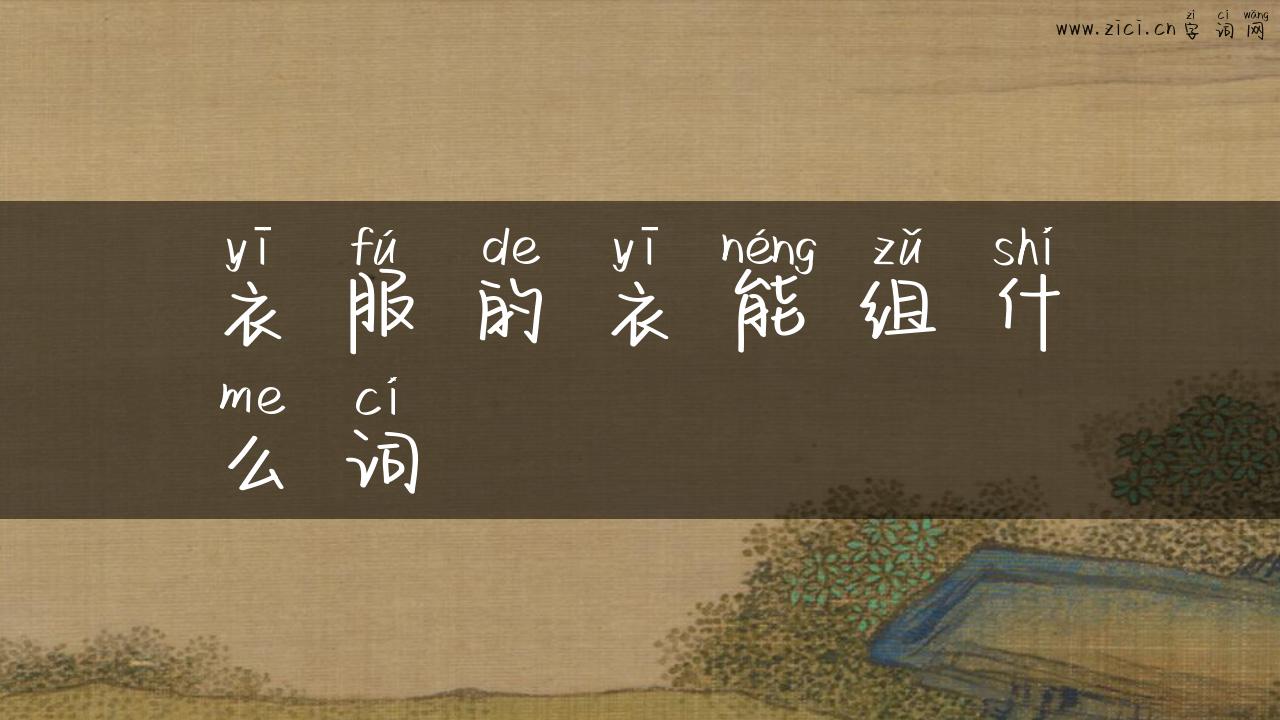 zì cí wǎng
www.zici.cn 字词网
yī fú de yī néng zǔ shí
衣服的衣能组什
me cí
么词